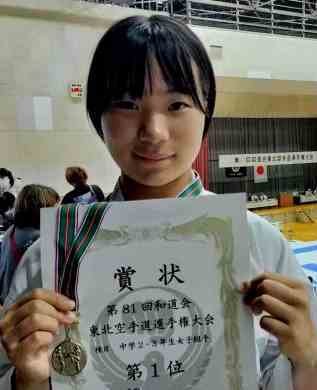 賞状
第81回和道会
東北空手道選手権大会
種目 中学2・3年生女子組手
第1位